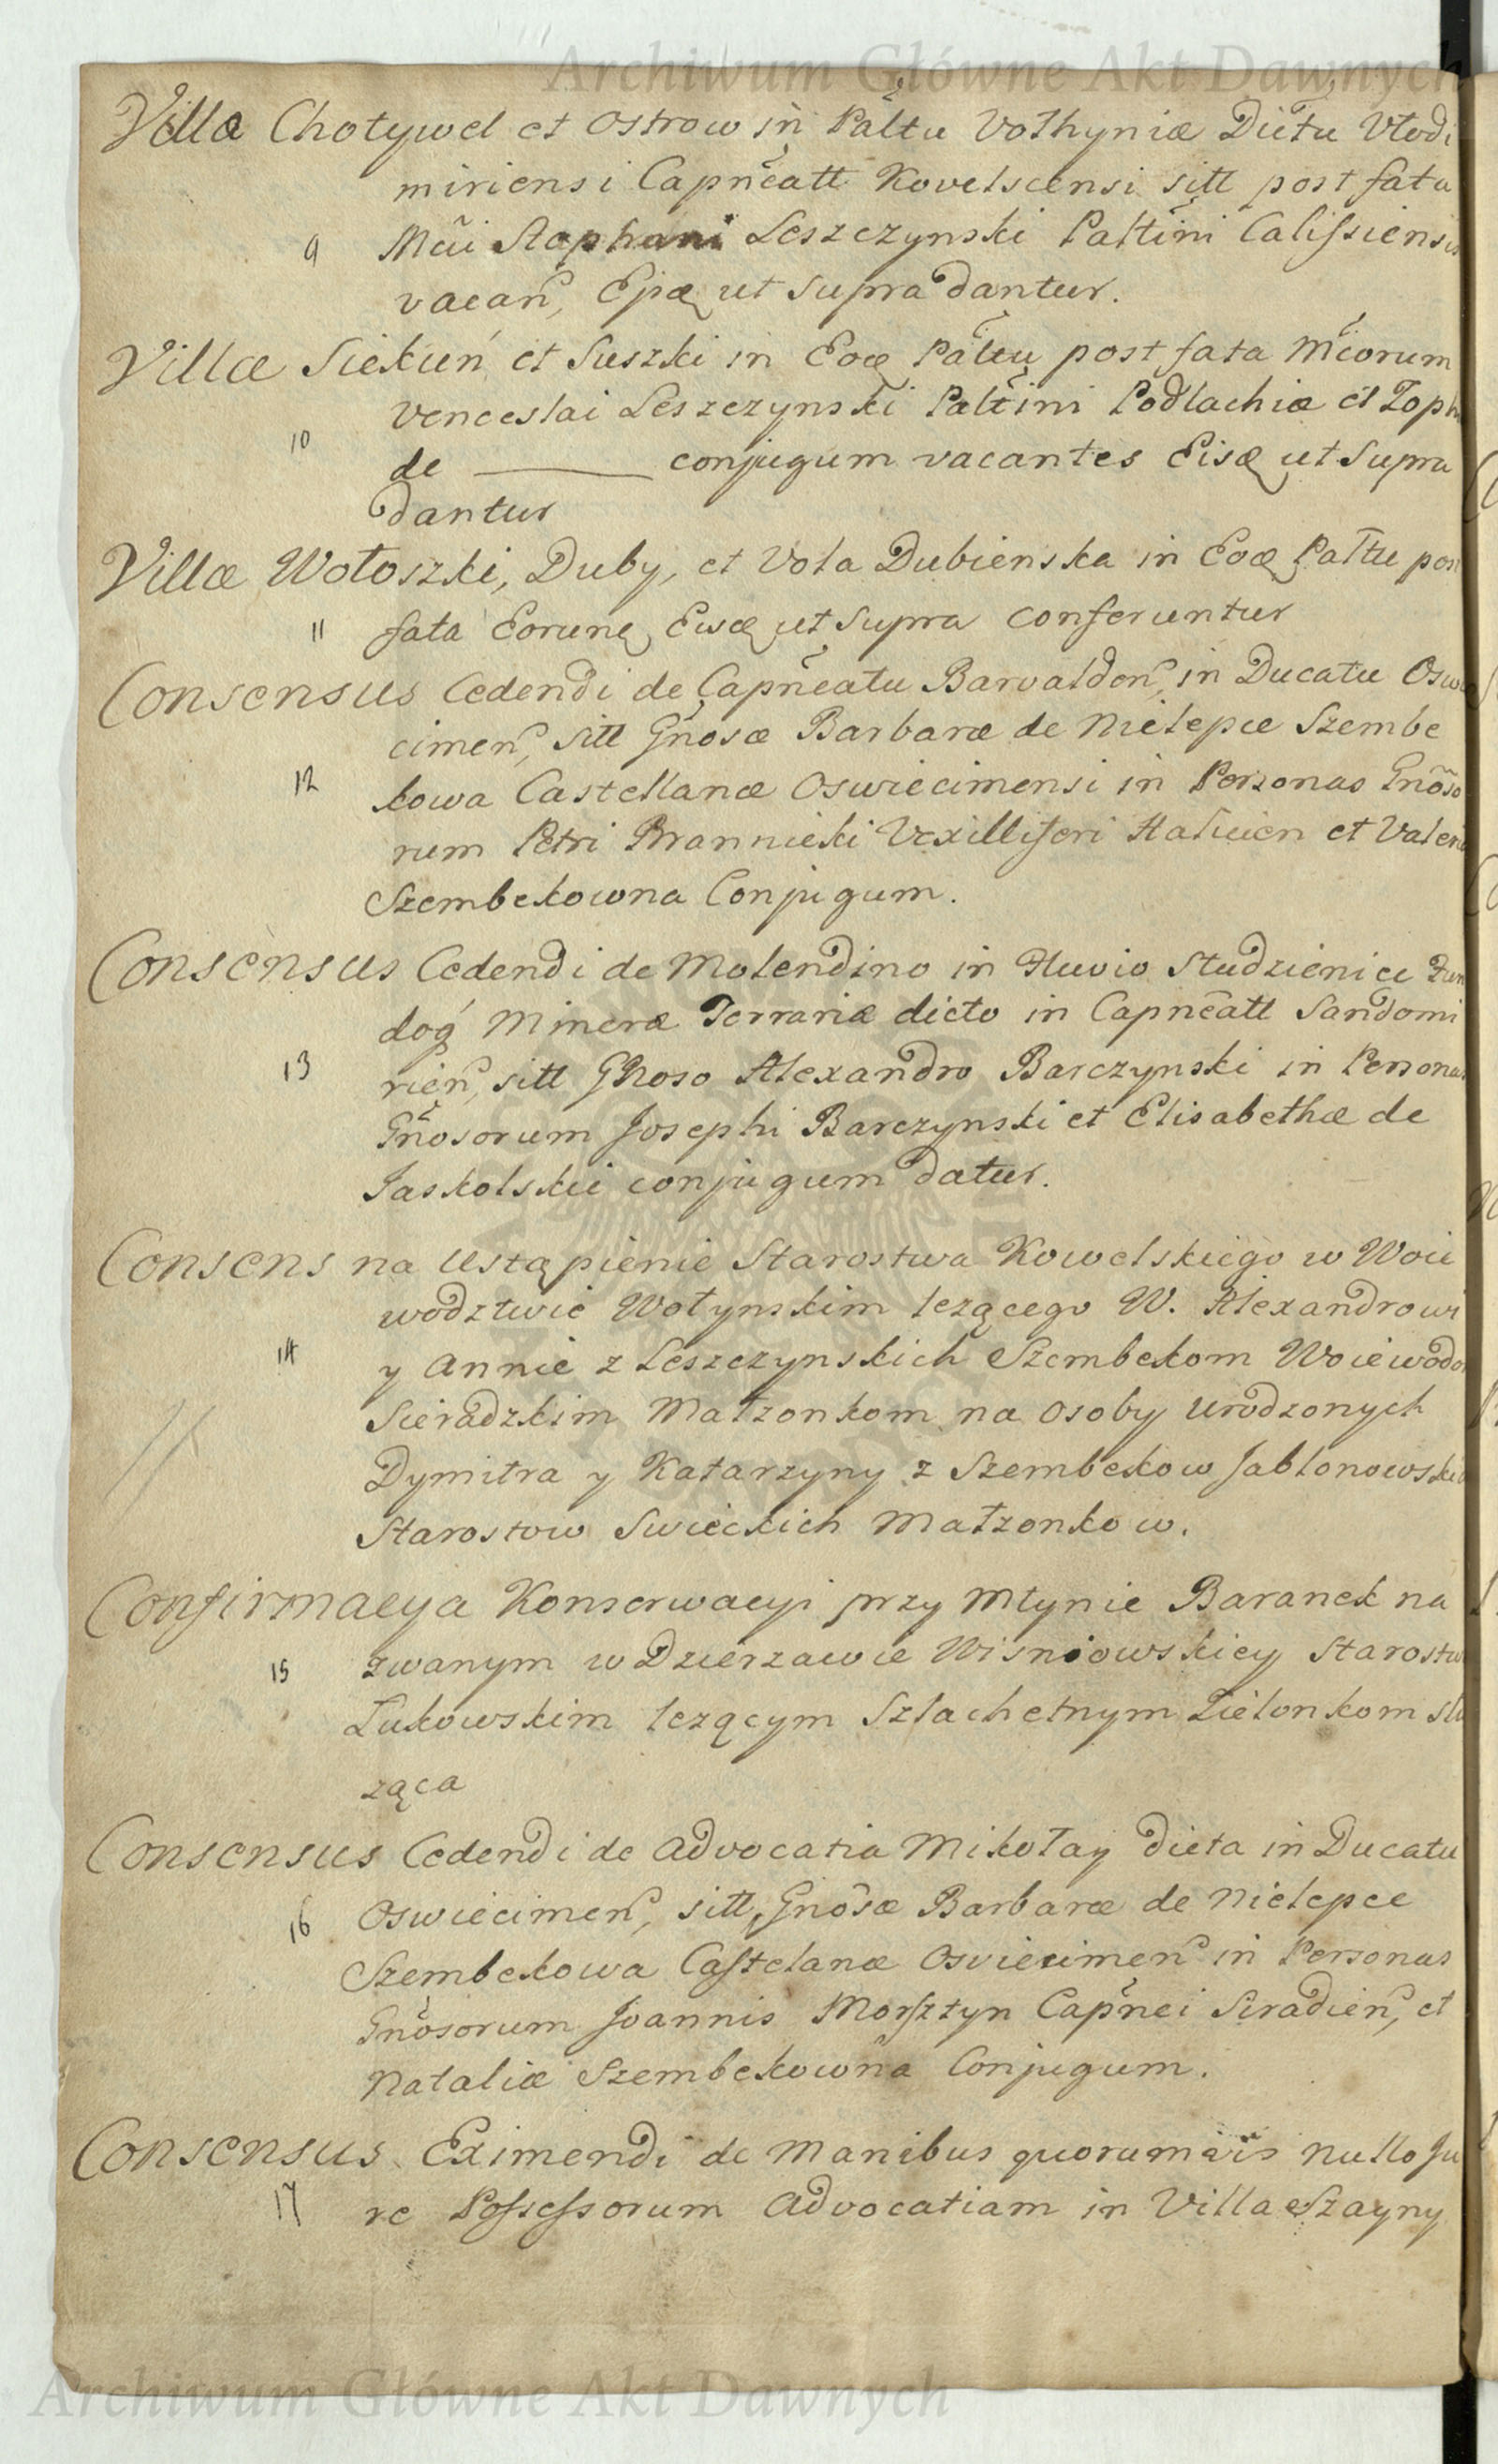 Archiwum Główne Akt Dawnych
Villa Chotywel et Ostrow in Paltu Volhyniæ Dictu Vlodi
miriensi Capneatt Kovelscensi sitt post fata
9 Mci Stephani Leszczynski Paltini Calissiensis
vacan, Ejsæq ut supra dantur.
Villæ Siekuń et Suszki in Eoq Paltu post fata Mcorum
Venceslai Leszczynski Paltini Podlachiæ et Toph
10 de ——— conjugum vacantes Eisq ut Supra
dantur
Villæ Wołoszki, Duby, et Vola Dubienska in Eoq Paltu post
11 fata Eorunq Eisq ut Supra conferuntur
Consensus Cedendi de Capneatu Barvalden, in Ducatu Osw
cimen, sitt Gnosæ Barbaræ de Nielepce Szembe
12 kowa Castellanæ Oswiecimensi in Personas Gnoso
rum Petri Brannicki Vexilliferi Halicien et Valeri
Szembekowna Conjugum.
Consensus Cedendi de Molendino in Fluvio Studzienice
dog Mineræ Ferrariæ dicto in Capneatt Sandomi
13 rien, sitt Gnoso Alexandro Barczynski in Personas
Gnosorum Josephi Barczynski et Elisabethæ de
Jaskolskie conjugum datur.
Consens na Ustąpienie Starostwa Kowelskiego w Woie
wodztwie Wołynskim lezącego W. Alexandrowi
14 y Annie z Leszczynskich Szembekom Woiewodo
Sieradzkim Małzonkom na Osoby Urodzonych
Dymitra y Katarzyny z Szembekow Jabłonowski
Starostow Swieckich Małzonkow.
Confirmacya Konserwacyi przy Młynie Baranek na
15 zwanym w Dzierzawie Wisniowskiey Starostw
Łukowskim lezącym Szlachetnym Zielonkom słu
ząca
Consensus Cedendi de Advocatia Mikołay dicta in Ducatu
16 Oswiecimen, sitt, Gnosæ Barbaræ de Nielepce
Szembekowa Castelanæ Osviecimen in Personas
Gnosorum Joannis Morsztyn Capnei Siradien, et
Nataliæ Szembekowna Conjugum.
Consensus Eximendi de Manibus quorumvis nullo Ju
17 re Possessorum Advocatiam in Villa Szayny
Archiwum Główne Akt Dawnych